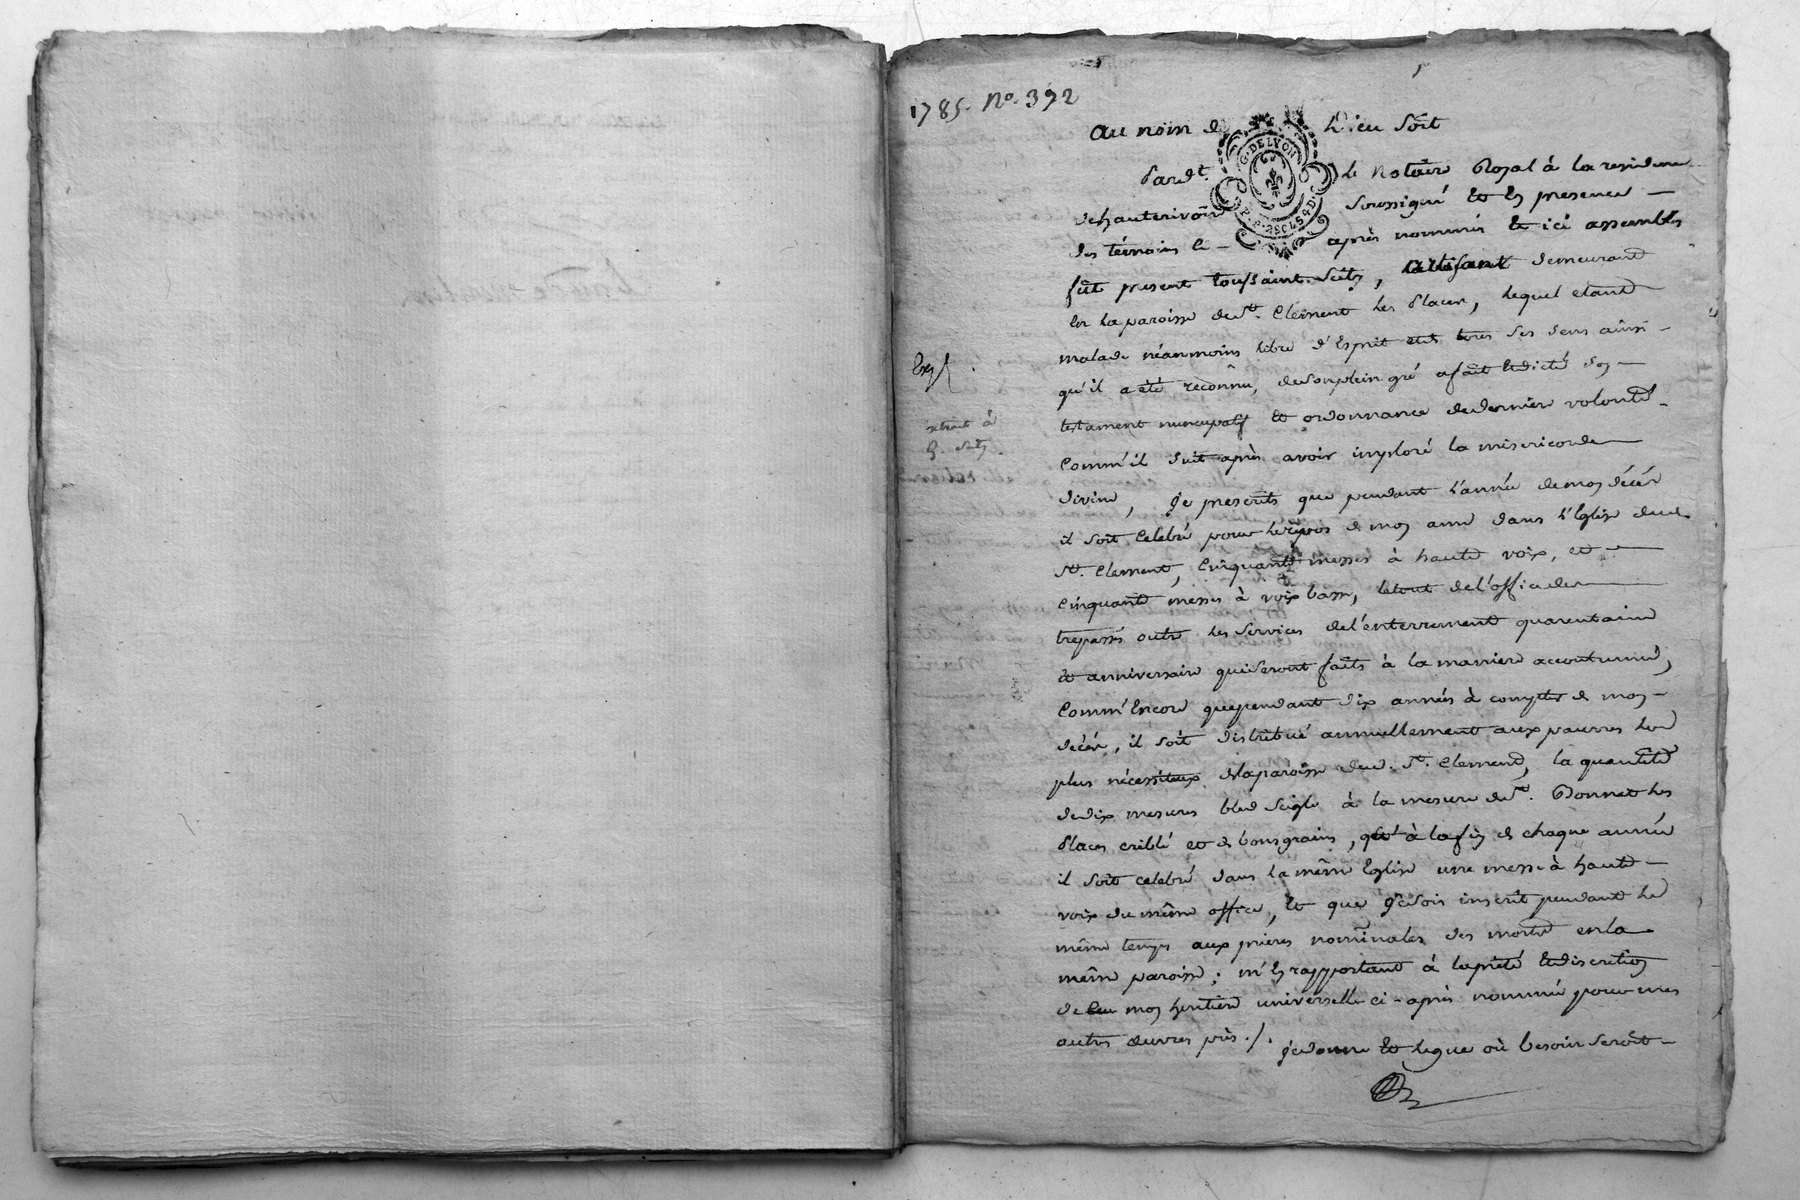 1785. No. 392
Au nom de Dieu soit
G. DE LYON
Pardt. le Notaire Royal à la residence
de hauterivoire soussigné et en presence
des témoins ci- après nommés et ici assemblés
fût present toussaint , demeurant
en la paroisse de St. Clement les Places, lequel etant
malade néanmoins libre d'Esprit et de tous ses sens ainsi
qu'il a été reconnu, de son plein gré a fait et dicté son
testament nuncupatif et ordonnance de derniere volonté
Exp.
extrait à
comm'il suit après avoir imploré la misericorde
divine, je prescrits que pendant l'année de mon décés
il soit celebré pour le repos de mon ame dans l'Eglise dud.
St. Clement, cinquante messes à haute voix, et
cinquante messes à voix basse, le tout de l'office des
trepassés outre les services de l'enterrement quarantaine
et anniversaire qui seront faits à la maniere accoutumée,
comm'encore que pendant dix années à compter de mon
décés, il soit distribué annuellement aux pauvres les
plus nécessiteux de la paroisse dud. St. Clement, la quantité
de dix mesures bled seigle à la mesure de St. Bonnet les
Places criblé et de bons grains, qu'à la fin de chaque année
il soit celebré dans la même Eglise une messe à haute
voix du même office, et que je sois inscrit pendant le
même temps aux prieres nominales des morts en la
même paroisse; m'en rapportant à la pieté et discretion
de mon heritiere universelle ci-après nommée pour mes
autres œuvres pies./.
je donne et legue où besoin seroit